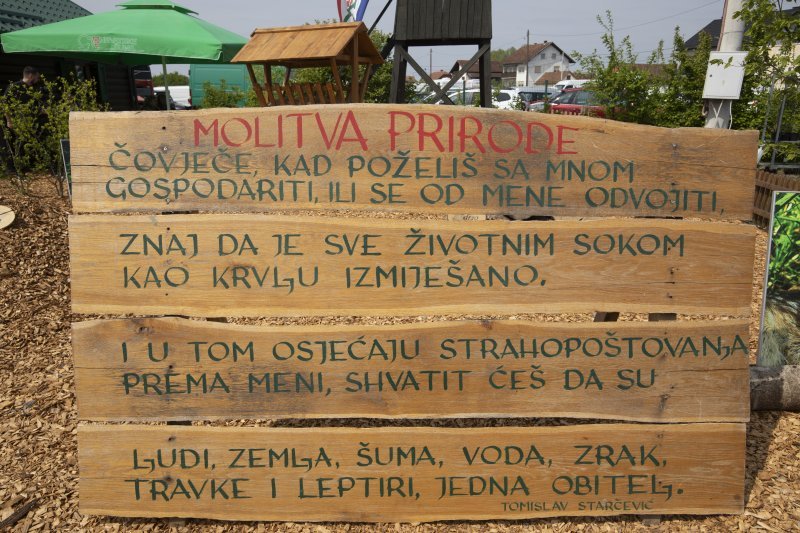 MOLITVA PRIRODE
ČOVJEČE, KAD POŽELIŠ SA MNOM
GOSPODARITI, ILI SE OD MENE ODVOJITI,
ZNAJ DA JE SVE ŽIVOTNIM SOKOM
KAO KRVLJU IZMIJEŠANO.
I U TOM OSJEĆAJU STRAHOPOŠTOVANJA
PREMA MENI, SHVATIT ĆEŠ DA SU
LJUDI, ZEMLJA, ŠUMA, VODA, ZRAK,
TRAVKE I LEPTIRI, JEDNA OBITELJ.
TOMISLAV STARČEVIĆ